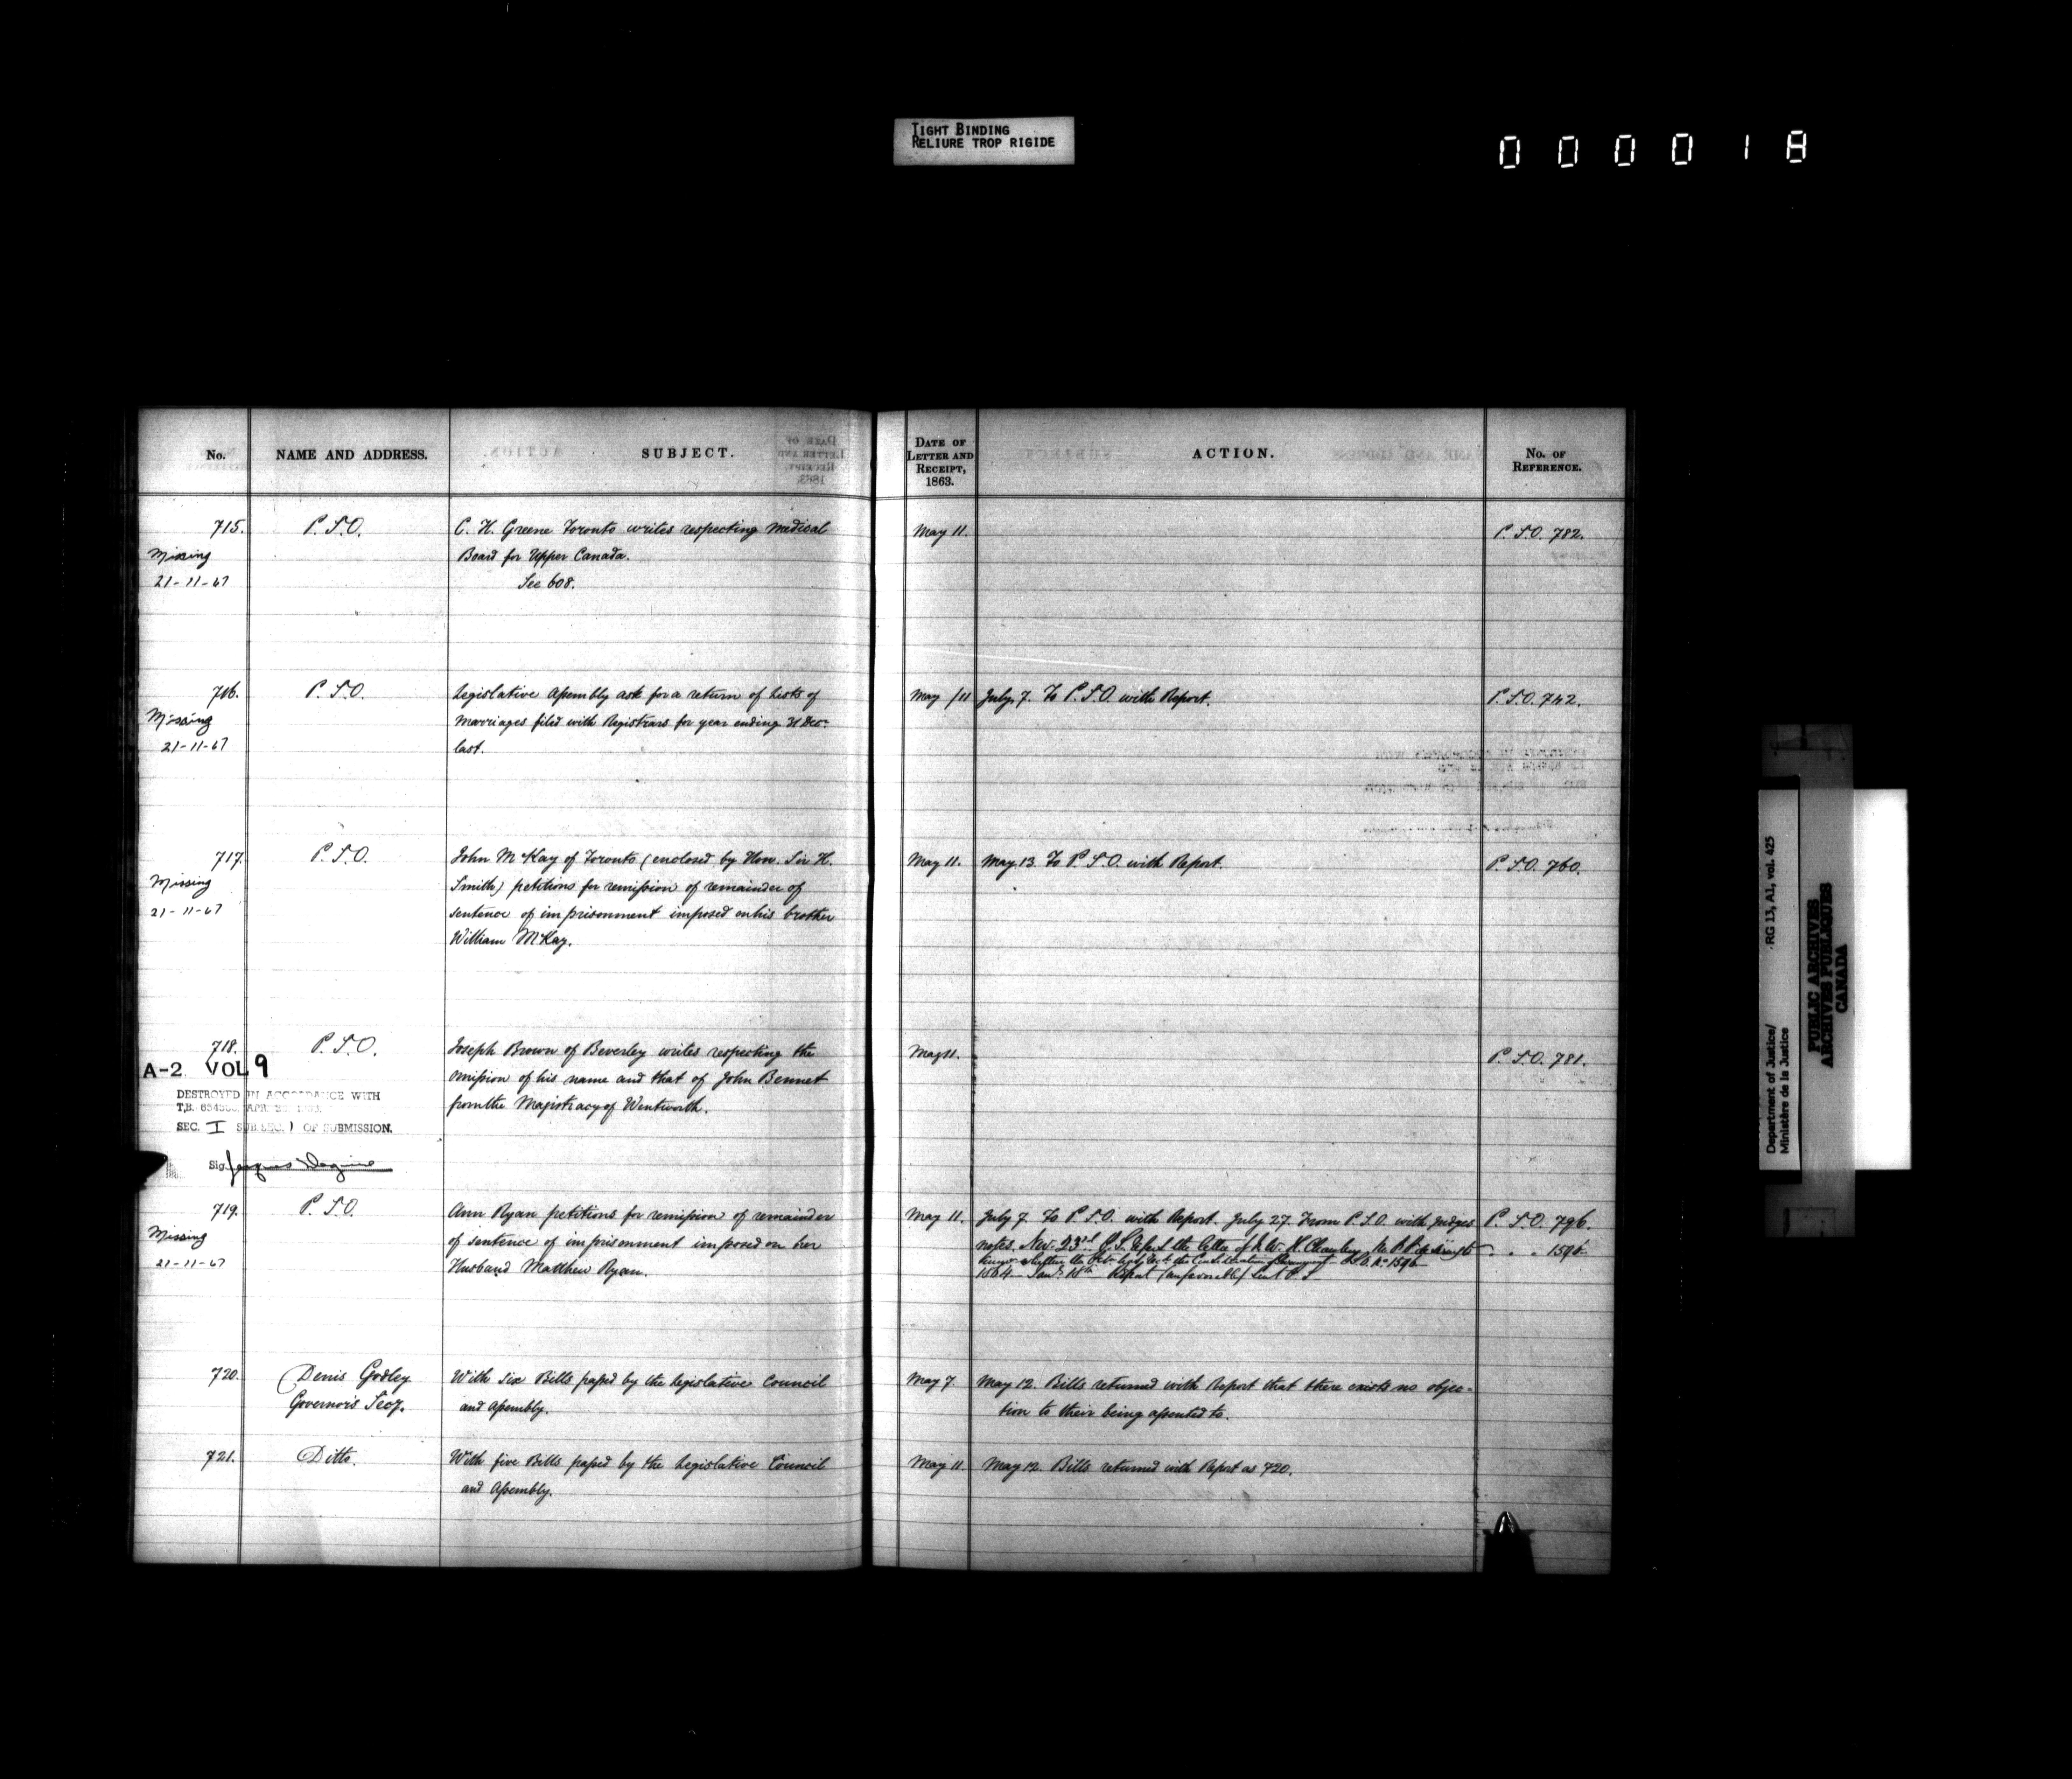 TIGHT BINDING
RELIURE TROP RIGIDE
000018
No.
NAME AND ADDRESS.
SUBJECT.
DATE OF
LETTER AND
RECEIPT,
1863.
ACTION.
No. OF
REFERENCE.
715. P.S.O. C. H. Greene Toronto writes respecting Medical May 11. P.S.O. 782.
Missing Board for Upper Canada.
21-11-67 See 608.
716. P.S.O. Legislative Assembly ask for a return of Lists of May /11 July 7. To P.S.O. with Report. P.S.O. 742.
Missing Marriages filed with Registrars for year ending 31 Decr
21-11-67 last.
717. P.S.O. John McKay of Toronto (enclosed by Hon. Sir H. May 11. May 13 To P.S.O. with Report. P.S.O. 760.
Missing Smith) petitions for remission of remainder of
21-11-67 sentence of imprisonment imposed on his brother
William McKay.
718. P.S.O. Joseph Brown of Beverley writes respecting the May 11. P.S.O. 781.
A-2 VOL 9 omission of his name and that of John Bennet
DESTROYED IN ACCORDANCE WITH from the Magistracy of Wentworth.
T.B. APR.
SEC. I SUB.SEC. 1 OF SUBMISSION.
Sig. Jacques
719. P.S.O. Ann Ryan petitions for remission of remainder May 11. July 7 To P.S.O. with Report. July 27. From P.S.O. with Judges P.S.O. 796.
Missing of sentence of imprisonment imposed on her notes. Nov. 23rd the letter of W. H. " " 1596
21-11-67 Husband Matthew Ryan. No 1596
1864 Jany 18th Report Sent P.S
720. Denis Godley With six Bills passed by the Legislative Council May 7. May 12. Bills returned with Report that there exists no objec-
Governor's Secy. and Assembly. tion to their being assented to.
721. Ditto. With five Bills passed by the Legislative Council May 11 May 12. Bills returned with Report as 720.
and Assembly.
Department of Justice/ RG 13, A1, vol. 425
Ministère de la Justice
PUBLIC ARCHIVES
ARCHIVES PUBLIQUES
CANADA